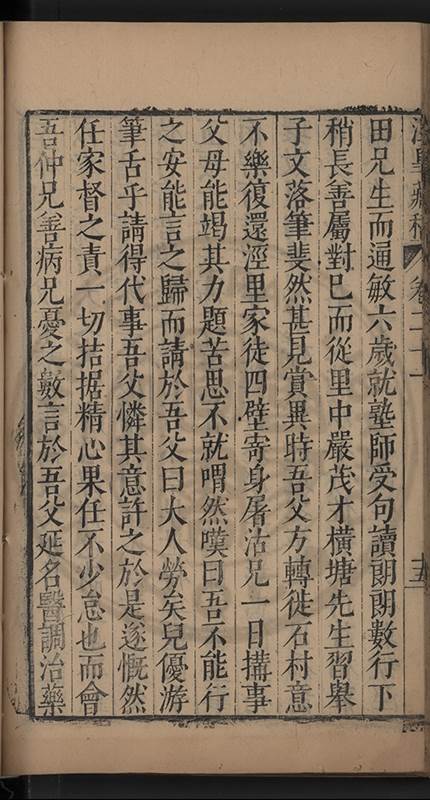 涇臯藏稿 卷二十一 十五
田兄生而通敏六歲就塾師受句讀朗朗數行下
稍長善屬對已而從里中嚴茂才橫塘先生習舉
子文落筆斐然甚見賞異時吾父方轉徙石村意
不樂復還涇里家徒四壁寄身屠沽兄一日搆事
父母能竭其力題苦思不就喟然嘆曰吾不能行
之安能言之歸而請於吾父曰大人勞矣兒優游
筆舌乎請得代事吾父憐其意許之於是遂慨然
任家督之責一切拮据精心果任不少怠也而會
吾仲兄善病兄憂之數言於吾父延名醫調治藥